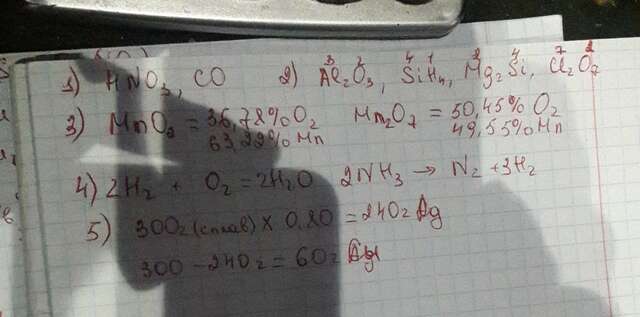 1) HNO3, CO 2) Al2O3, SiH4, Mg2Si, Cl2O7
3) MnO2 = 36,78% O2 Mn2O7 = 50,45% O2
63,22% Mn 49,55% Mn
4) 2H2 + O2 = 2H2O 2NH3 → N2 + 3H2
5) 300г (сплав) x 0,80 = 240г Ag
300 - 240г = 60г